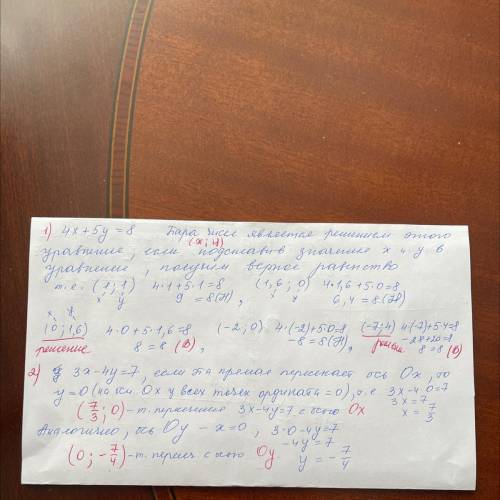 1) 4x+5y=8 Пара чисел является решением этого
(x; y)
уравнение, если подставив значение x и y в
уравнение, получим верное равенство
т.е. (1; 1) 4·1+5·1=8 (1,6; 0) 4·1,6+5·0=8
x y 9=8(Н), x y 6,4=8(Н)
x y
(0; 1,6) 4·0+5·1,6=8 (-2; 0) 4·(-2)+5·0=8 (-7; 4) 4·(-7)+5·4=8
решение 8=8 (В), -8=8(Н), решение -28+20=8
8=8 (В)
2) 3x-4y=7, если эта прямая пересекает ось Ox, то
y=0 (на оси Ox у всех точек ордината=0), т.е 3x-4·0=7
3x=7
(7/3; 0)-т. пересечения 3x-4y=7 с осью Ox x=7/3
Аналогично, ось Oy - x=0, 3·0-4y=7
-4y=7
(0; -7/4)-т. перес. с осью Oy. y=-7/4